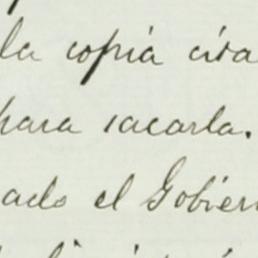 la copia cita
para sacarla.
ado el Gobier